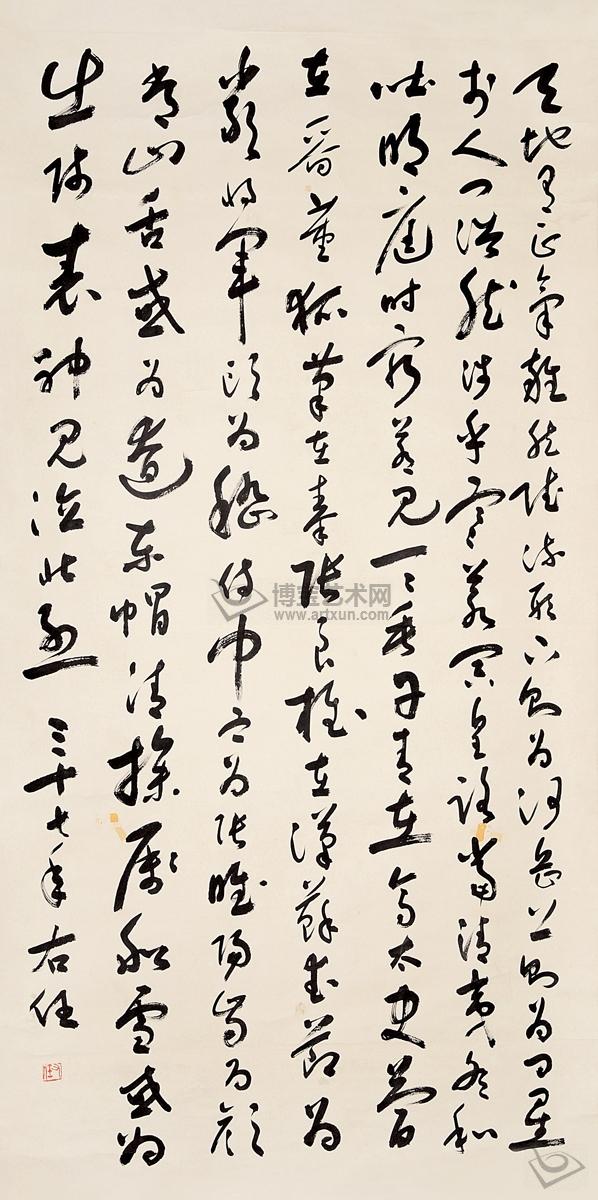 天地有正氣雜然賦流形下則為河嶽上則為日星
於人曰浩然沛乎塞蒼冥皇路當清夷含和
吐明庭時窮節乃見一一垂丹青在齊太史簡
在晉董狐筆在秦張良椎在漢蘇武節為
嚴將軍頭為嵇侍中血為張睢陽齒為顏
常山舌或為遼東帽清操厲冰雪或為
出師表神鬼泣壯烈 三十七年 右任
右任
博宝艺术网
www.artxun.com